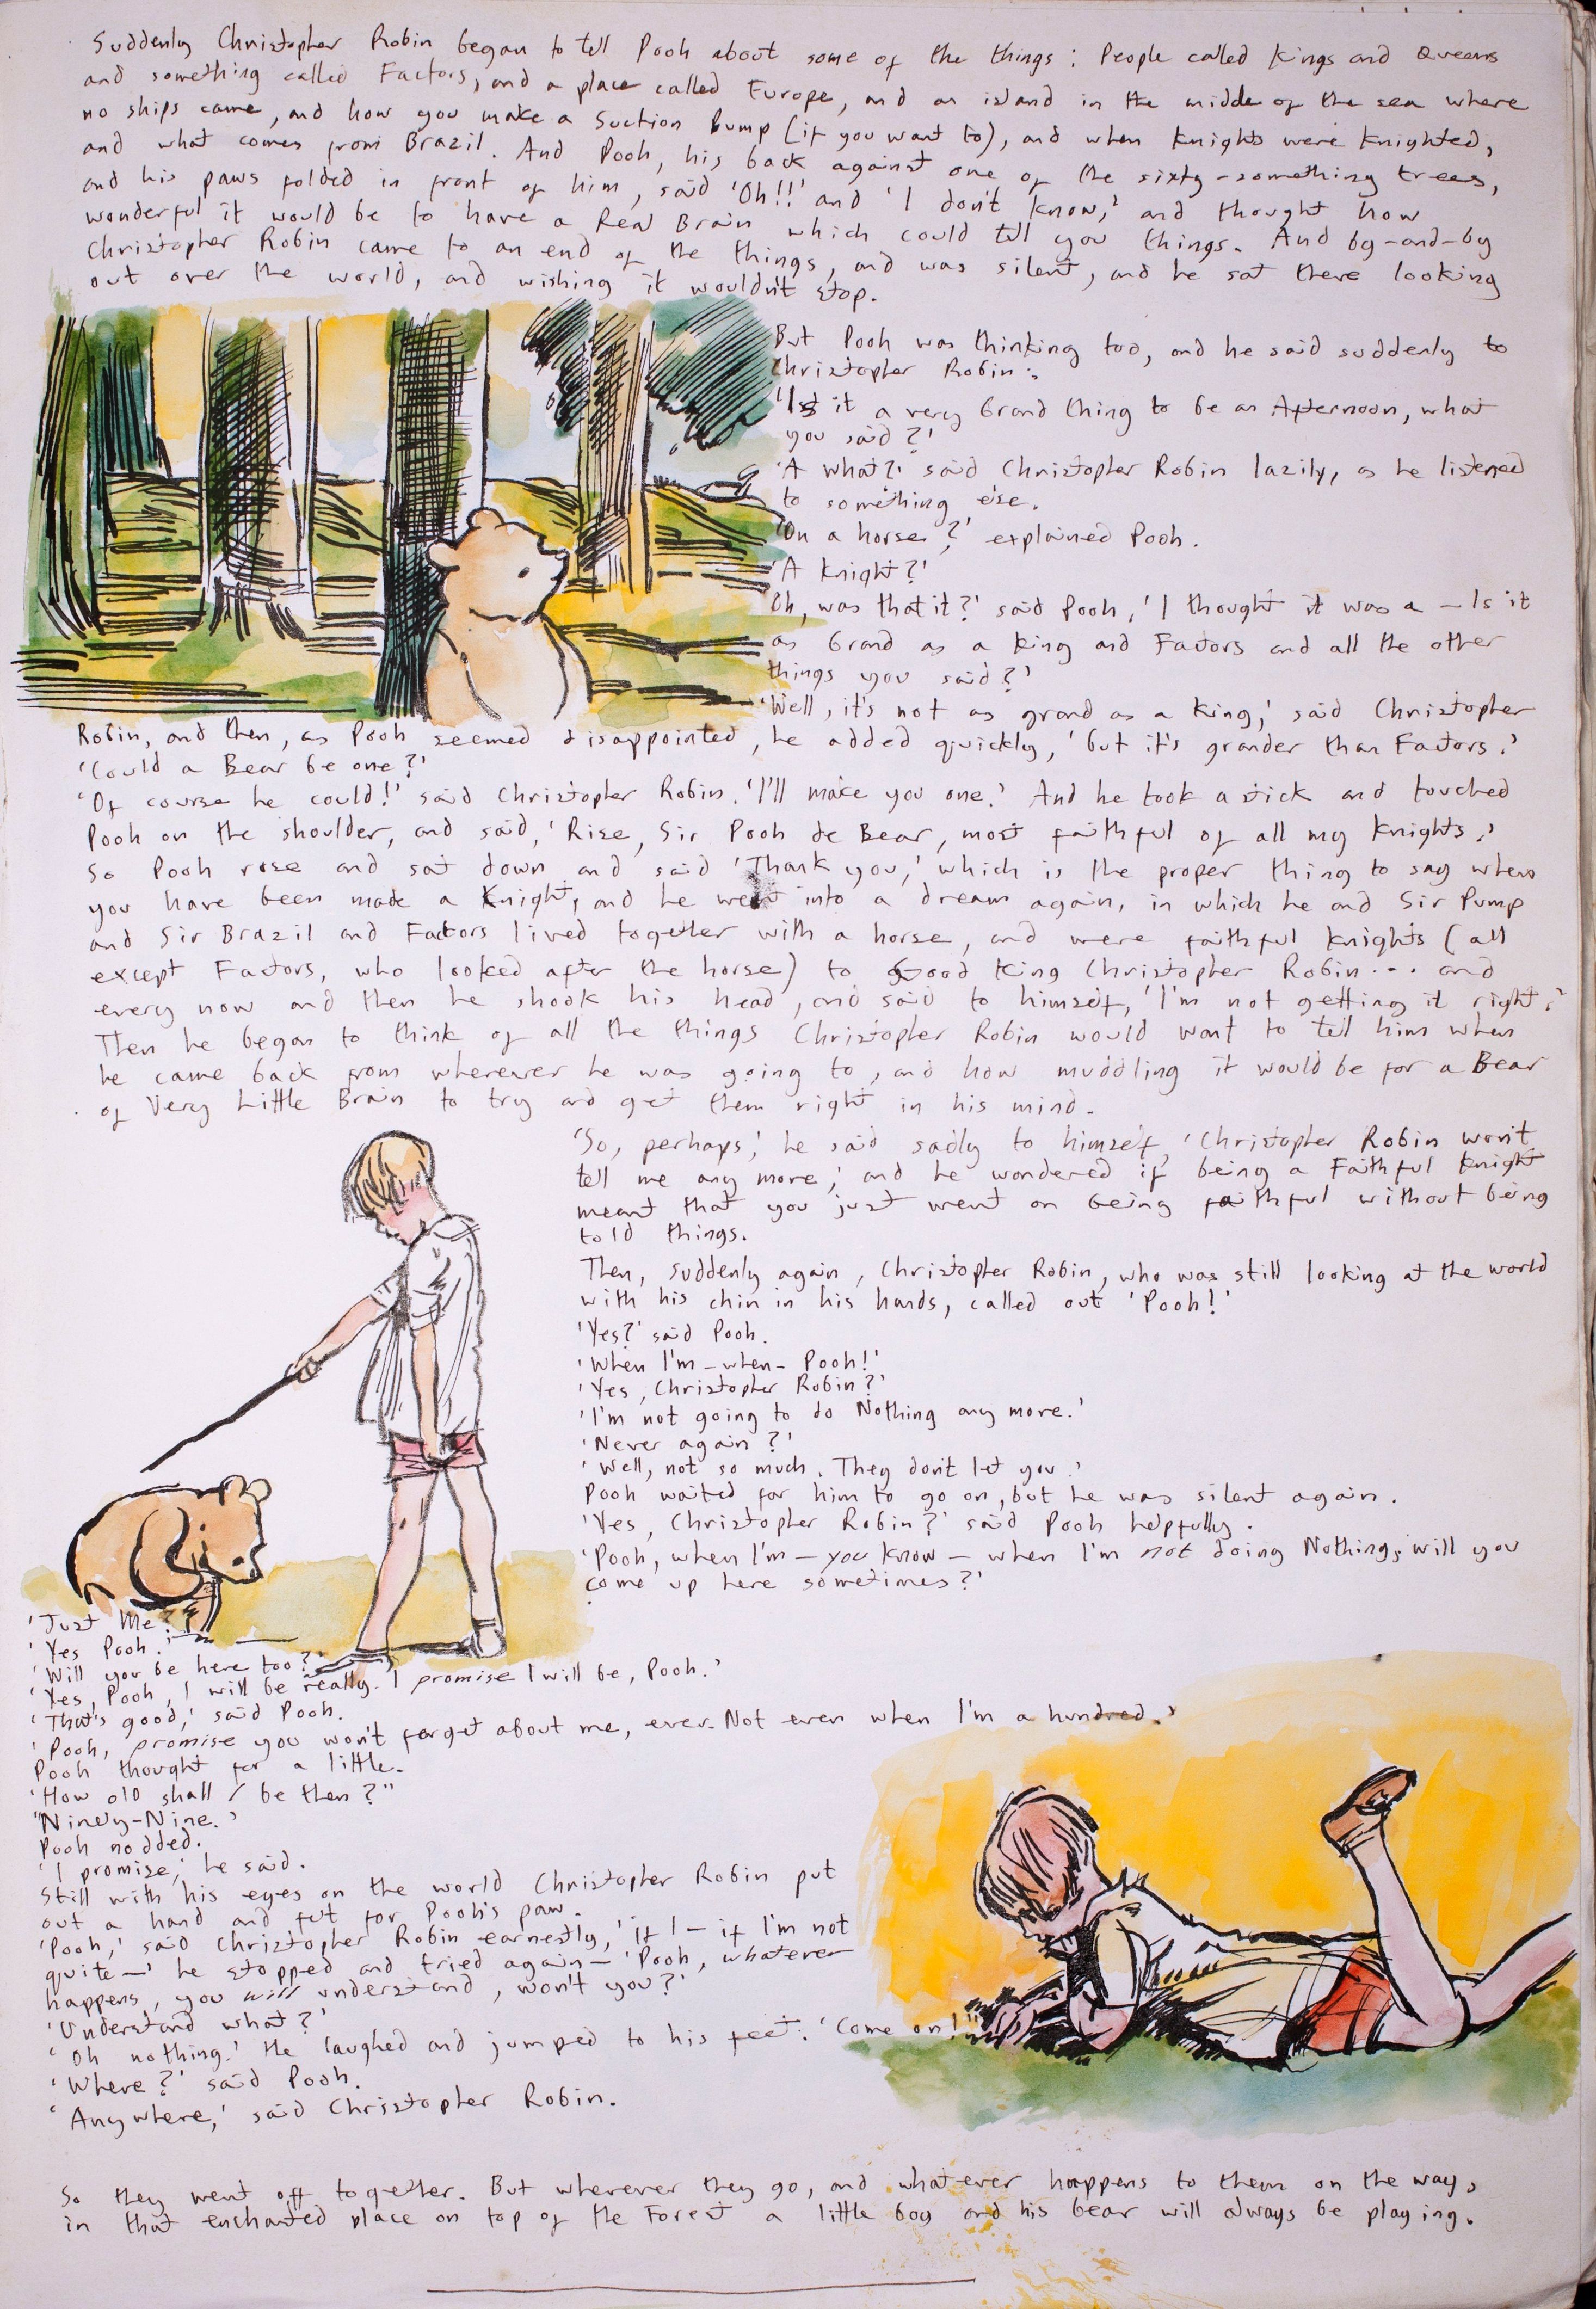 Suddenly Christopher Robin began to tell Pooh about some of the things: People called Kings and Queens
and something called Factors, and a place called Europe, and an island in the middle of the sea where
no ships came, and how you make a Suction Pump (if you want to), and when Knights were Knighted,
and what comes from Brazil. And Pooh, his back against one of the sixty-something trees,
and his paws folded in front of him, said 'Oh!!' and 'I don't know,' and thought how
wonderful it would be to have a Real Brain which could tell you things. And by-and-by
Christopher Robin came to an end of the things, and was silent, and he sat there looking
out over the world, and wishing it wouldn't stop.
But Pooh was thinking too, and he said suddenly to
Christopher Robin:
'Is it a very Grand thing to be an Afternoon, what
you said?'
'A what?' said Christopher Robin lazily, as he listened
to something else.
'On a horse?' explained Pooh.
'A Knight?'
'Oh, was that it?' said Pooh, 'I thought it was a — Is it
as Grand as a King and Factors and all the other
things you said?'
'Well, it's not as grand as a King,' said Christopher
Robin, and then, as Pooh seemed disappointed, he added quickly, 'but it's grander than Factors.'
'Could a Bear be one?'
'Of course he could!' said Christopher Robin. 'I'll make you one.' And he took a stick and touched
Pooh on the shoulder, and said, 'Rise, Sir Pooh de Bear, most faithful of all my Knights.'
So Pooh rose and sat down and said 'Thank you,' which is the proper thing to say when
you have been made a Knight, and he went into a dream again, in which he and Sir Pump
and Sir Brazil and Factors lived together with a horse, and were faithful knights (all
except Factors, who looked after the horse) to Good King Christopher Robin... and
every now and then he shook his head, and said to himself, 'I'm not getting it right.'
Then he began to think of all the things Christopher Robin would want to tell him when
he came back from wherever he was going to, and how muddling it would be for a Bear
of Very Little Brain to try and get them right in his mind.
'So, perhaps,' he said sadly to himself, 'Christopher Robin won't
tell me any more,' and he wondered if being a Faithful Knight
meant that you just went on being faithful without being
told things.
Then, suddenly again, Christopher Robin, who was still looking at the world
with his chin in his hands, called out 'Pooh!'
'Yes?' said Pooh.
'When I'm - when - Pooh!'
'Yes, Christopher Robin?'
'I'm not going to do Nothing any more.'
'Never again?'
'Well, not so much. They don't let you.'
Pooh waited for him to go on, but he was silent again.
'Yes, Christopher Robin?' said Pooh helpfully.
'Pooh, when I'm — you know — when I'm not doing Nothing, will you
come up here sometimes?'
'Just Me?'
'Yes Pooh.'
'Will you be here too?'
'Yes, Pooh, I will be really. I promise I will be, Pooh.'
'That's good,' said Pooh.
'Pooh, promise you won't forget about me, ever. Not even when I'm a hundred.'
Pooh thought for a little.
'How old shall I be then?"
"Ninety-Nine.'
Pooh nodded.
'I promise,' he said.
Still with his eyes on the world Christopher Robin put
out a hand and felt for Pooh's paw.
'Pooh,' said Christopher Robin earnestly, 'if I — if I'm not
quite —' he stopped and tried again — 'Pooh, whatever
happens, you will understand, won't you?'
'Understand what?'
'Oh nothing.' He laughed and jumped to his feet. 'Come on!'
'Where?' said Pooh.
'Anywhere,' said Christopher Robin.
So they went off together. But wherever they go, and whatever happens to them on the way,
in that enchanted place on top of the Forest a little boy and his bear will always be playing.